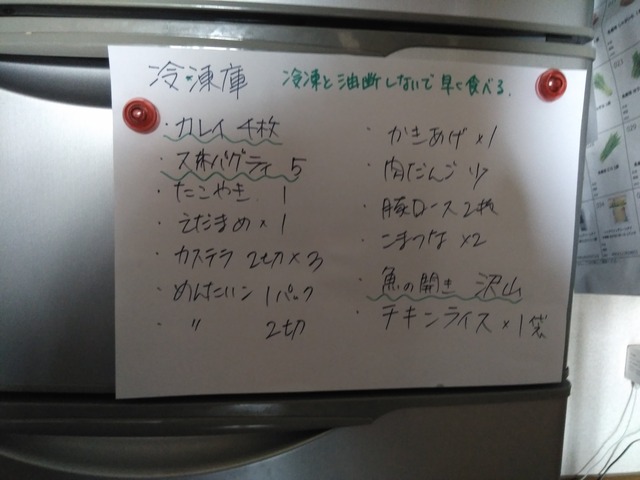 冷凍庫 冷凍と油断しないで早く食べる.
・カレイ 4枚
・スパゲティ 5
・たこやき 1
・えだまめ×1
・カステラ 2切×3
・めんたいこ 1パック
・〃 2切
・かきあげ×1
・肉だんご 少
・豚ロース 2枚
・こまつな ×2
・魚の開き 沢山
・チキンライス×1袋